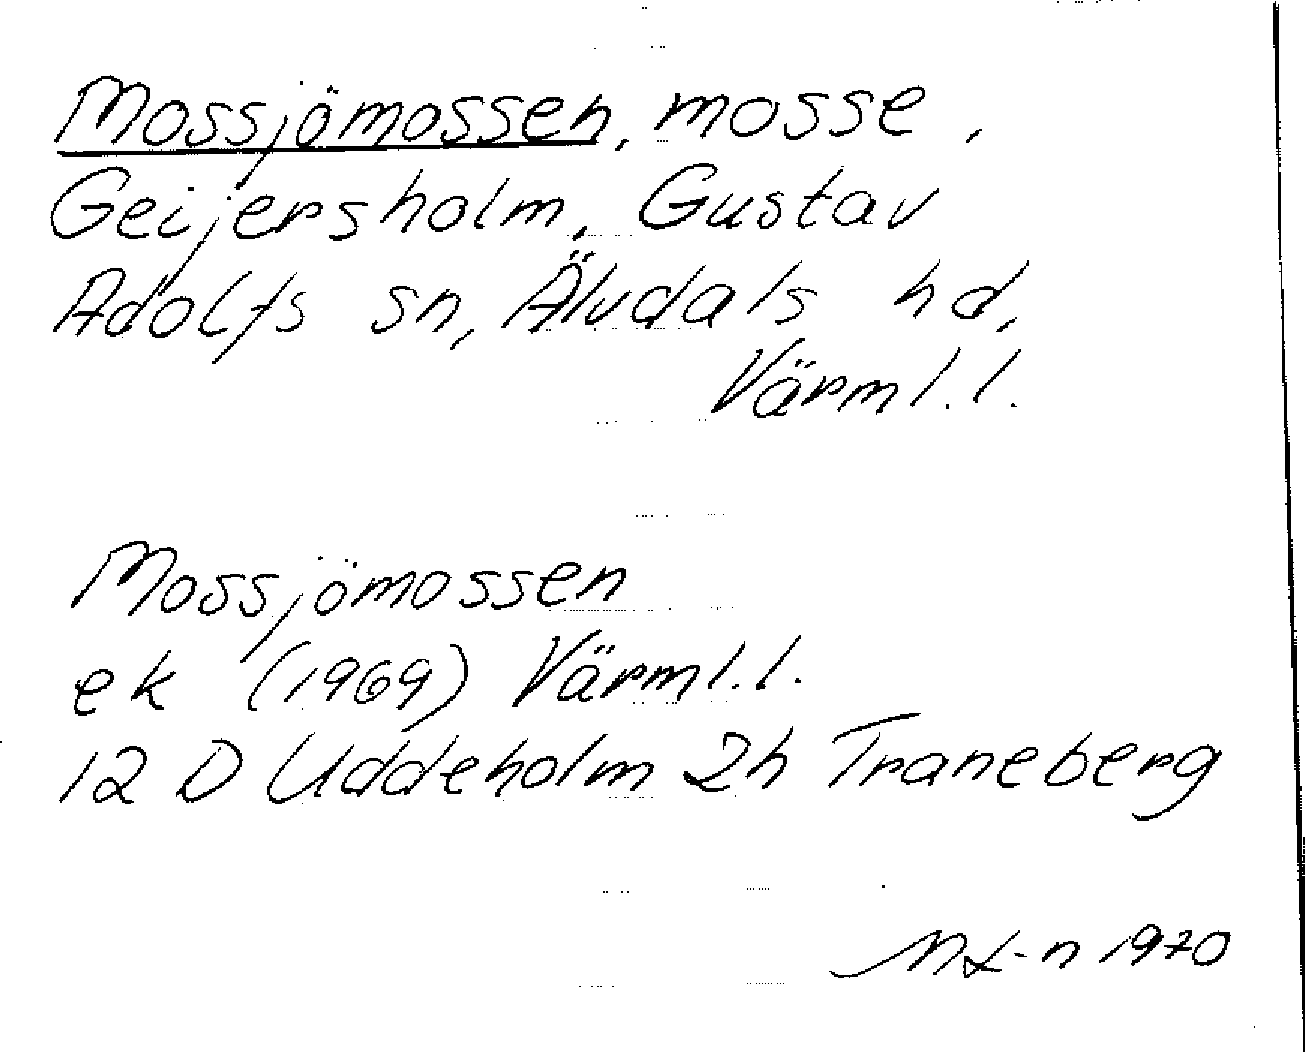 Mossjömossen, mosse,
Geijersholm, Gustav
Adolfs sn, Älvdals hd,
Värml. l.
Mossjömossen
ek (1969) Värml. l.
12 D Uddeholm 2h Traneberg
1970